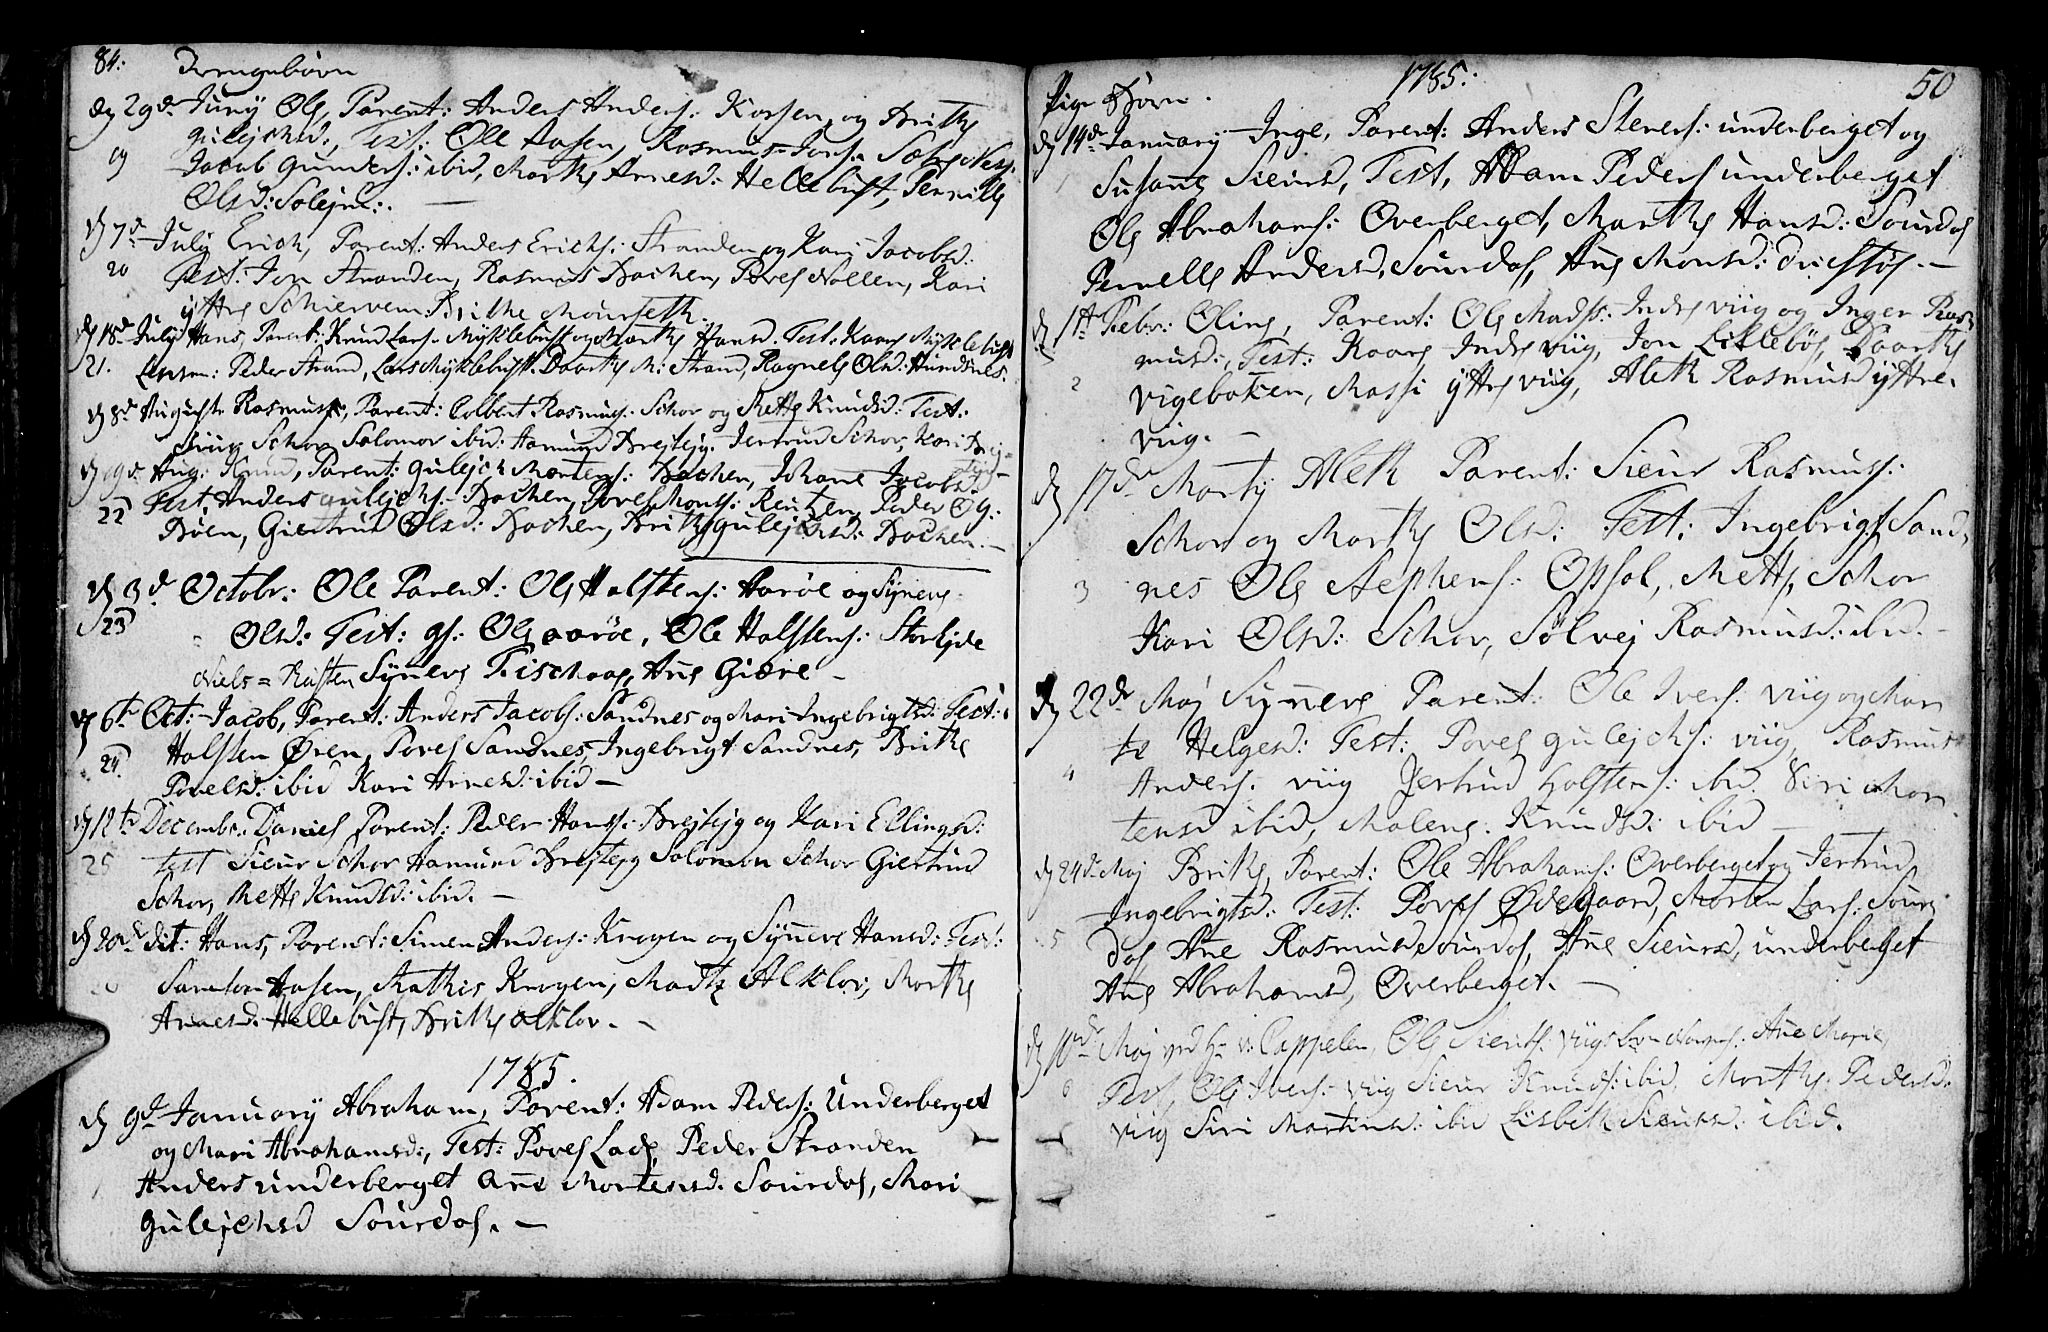 84: Drengebørn
d 29de Juny Ole, Parent: Anders Anders: Korsen, og Brithe
Gulejchsd:, Test: Ole Aasen, Rasmus Jons:
19 Jacob Gunders: ibid, Marthe Arnesd: Hellebust, Pernille
Olsd: Solejm:. —
d 7de July Erich, Parent: Anders Erichs: Stranden og Kari Jacobsd:
20 Test: Jon Stranden, Rasmus Bachen, Povel Nollen, Kari
ÿttre Schiervem Brithe Mourseth.
d 18de July Hans, Parent: Knud Lars: Myklebust og Marthe Hansd. Test: Kaare Myklebust
21. Lensm: Peder Strand, Lars Myklebust. Daarthe M: Strand, Ragnele Olsd: Hundsnes.
d 8de Augusti Rasmus, Parent: Colbert Rasmus: Schor og Mette Knudsd: Test:
Siur Schor Solomon ibid: Aamund Brejtejg. Jertrud Schor, Kari Brej-
tejg
d 19de Aug: Knud, Parent: Gulejch Mortens: Bachen, Johane Jacobsd:
22 Test, Anders Gulejchs: Bachen, Povel Mons: Reutzen, Peder Ol:
Böen, Giertrud Olsd: Bachen, Brithe Gulejchsd: Bachen. —
d 3de Octobr: Ole Parent: Ole Halstens: Harøe og Synneve
23 Olsd: Test: gs: Ole aarøe, Ole Halstens: Storlejde
Niels = Risten Syneve Fischaae, Ane Giære —
d 6te Oct: Jacob, Parent: Anders Jacobs: Sandnes og Mari Ingebrigtsd: Test:
24. Halsten Øren, Povel Sandnes, Ingebrigt Sandnes, Brithe
Povelsd: ibid Kari Arnesd: ibid —
d 12te Decembr. Daniel Parent: Peder Hans: Brejtejg og Kari Ellingsd:
25 Test Sieur Schor Aamund Brejtejg Solomon Schor Giertrud
Schor, Mette Knudsd: ibid. —
d 20de dit: Hans, Parent: Simen Anders: Krogen og Synneve Hansd: Test:
Samson Aasen, Mathis Krogen, Martz Alklov, Marthe
Arnesd. Hellebust, Brithe alklov. —
1785.
d 9de January Abraham, Parent: Adam Peders: Underberget
og Mari Abrahamsd:, Test: Povel Lade, Peder Stranden
1 Anders underberget Ane Mortensd. Sourdal, Mari
Gulejchsd Sourdal. —
Pige Børn. 1785. 50
d 14de January Inge, Parent: Anders Steners: underberget og
1 Susane Sieursd, Test, Adam Peders underberget
Ole Abrahams: Overberget, Marthe Hansd: Sourdal
Pernelle Andersd. Sourdal, Ane Monsd: Driestøl. —
d 1te Febr: Oline, Parent: Ole Mads: Indre viig og Inger Ras-
musd:, Test: Kaare Indre viig, Jon Lillebøe, Daarthe
2 Vigebaken, Massi ÿttre viig, Aleth Rasmusd ÿttre
viig. —
d 17de Marty Aleth Parent: Sieur Rasmus:
Schor og Marthe Olsd: Test: Ingebrigt Sand-
3 nes Ole Stephens: Opsol, Mette Schor
Kari Olsd: Schor, Solvej Rasmusd: ibid. —
d 22de Maj Synneve Parent: Ole Ivers: viig og Mar
te Helgesd: Test: Povel Gulejchs: viig, Rasmus
4 Anders. viig Jertrud Holstens: ibid. Siri Mor
tensd ibid, Malene. Knudsd: ibid —
d 24de Maj Brithe, Parent: Ole Abrahams: Overberget og Jertrud
Ingebrigtsd: Test: Povel Ødegaard, Morten Lars: Sour
5 dal Ane Rasmusd Sourdal, Ane Sieursd, underberget
Ane Abrahamsd, Overberget. —
d 10de Maj ved Hr v: Cappelen, Ole Sieurs: viigs Ane Marie
6 Test, Ole Ivers: viig Sieur Knuds: ibid. Marthe Pedersd.
viig Siri Martinsd: ibid Lisbeth Sieursd: ibid.